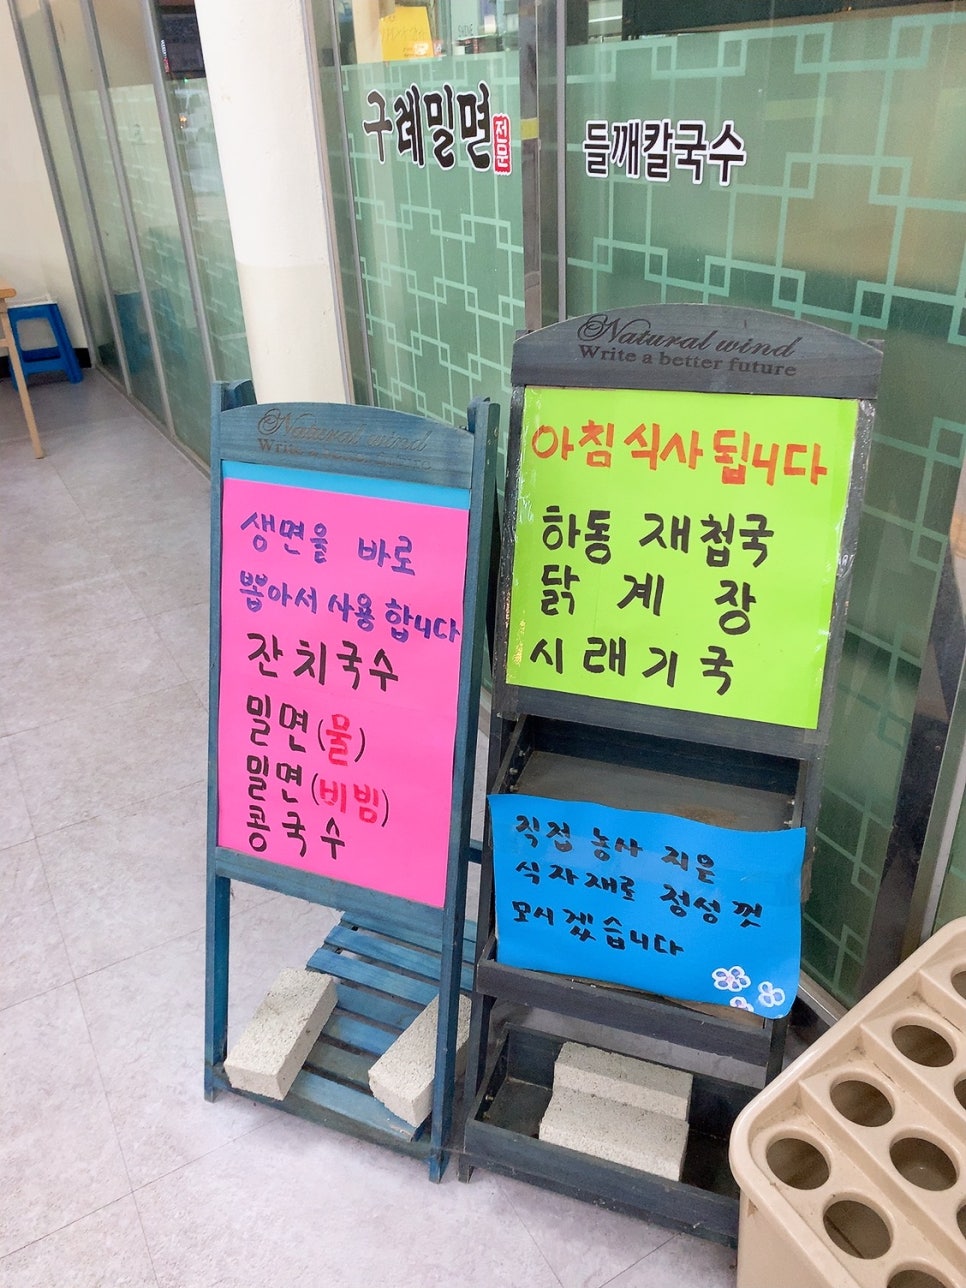 구례밀면
전문
들깨칼국수
Natural wind
Write a better future
아침 식사 됩니다
하동 재첩국
닭 계 장
시래기국
Natural wind
생면을 바로
뽑아서 사용합니다
잔치국수
밀면(물)
밀면(비빔)
콩국수
직접 농사 지은
식자재로 정성껏
모시겠습니다